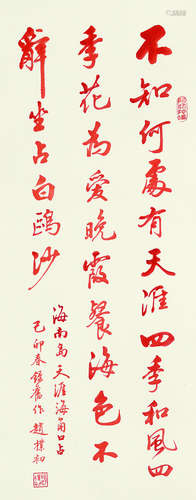 不知何處有天涯四季和風四
季花為愛晚霞餐海色不
辭坐占白鷗沙
海南島天涯海角口占
己卯春錄舊作趙樸初